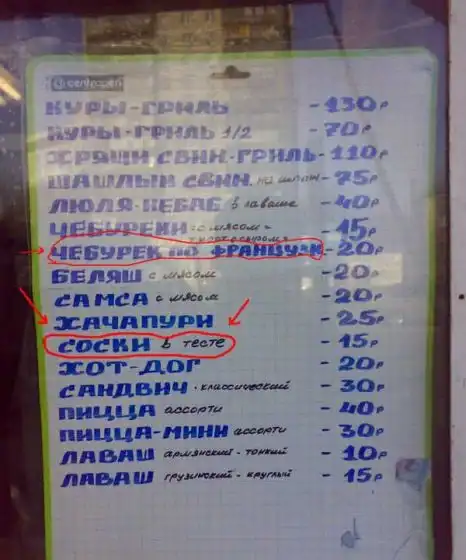 centropen
КУРЫ-ГРИЛЬ - 130р
КУРЫ-ГРИЛЬ 1/2 - 70р
ХРЯЩИ СВИН-ГРИЛЬ - 110р
ШАШЛЫК СВИН. на шпаж - 75р
ЛЮЛЯ-КЕБАБ в лаваше - 40р
ЧЕБУРЕКИ с мясом - 15р
ЧЕБУРЕК ПО ФРАНЦУЗИ - 20р
БЕЛЯШ с мясом - 20р
САМСА с мясом - 20р
ХАЧАПУРИ - 25р
СОСКИ в тесте - 15р
ХОТ-ДОГ - 20р
САНДВИЧ - классический - 30р
ПИЦЦА ассорти - 40р
ПИЦЦА-МИНИ ассорти - 30р
ЛАВАШ армянский - тонкий - 10р
ЛАВАШ грузинский - круглый - 15р